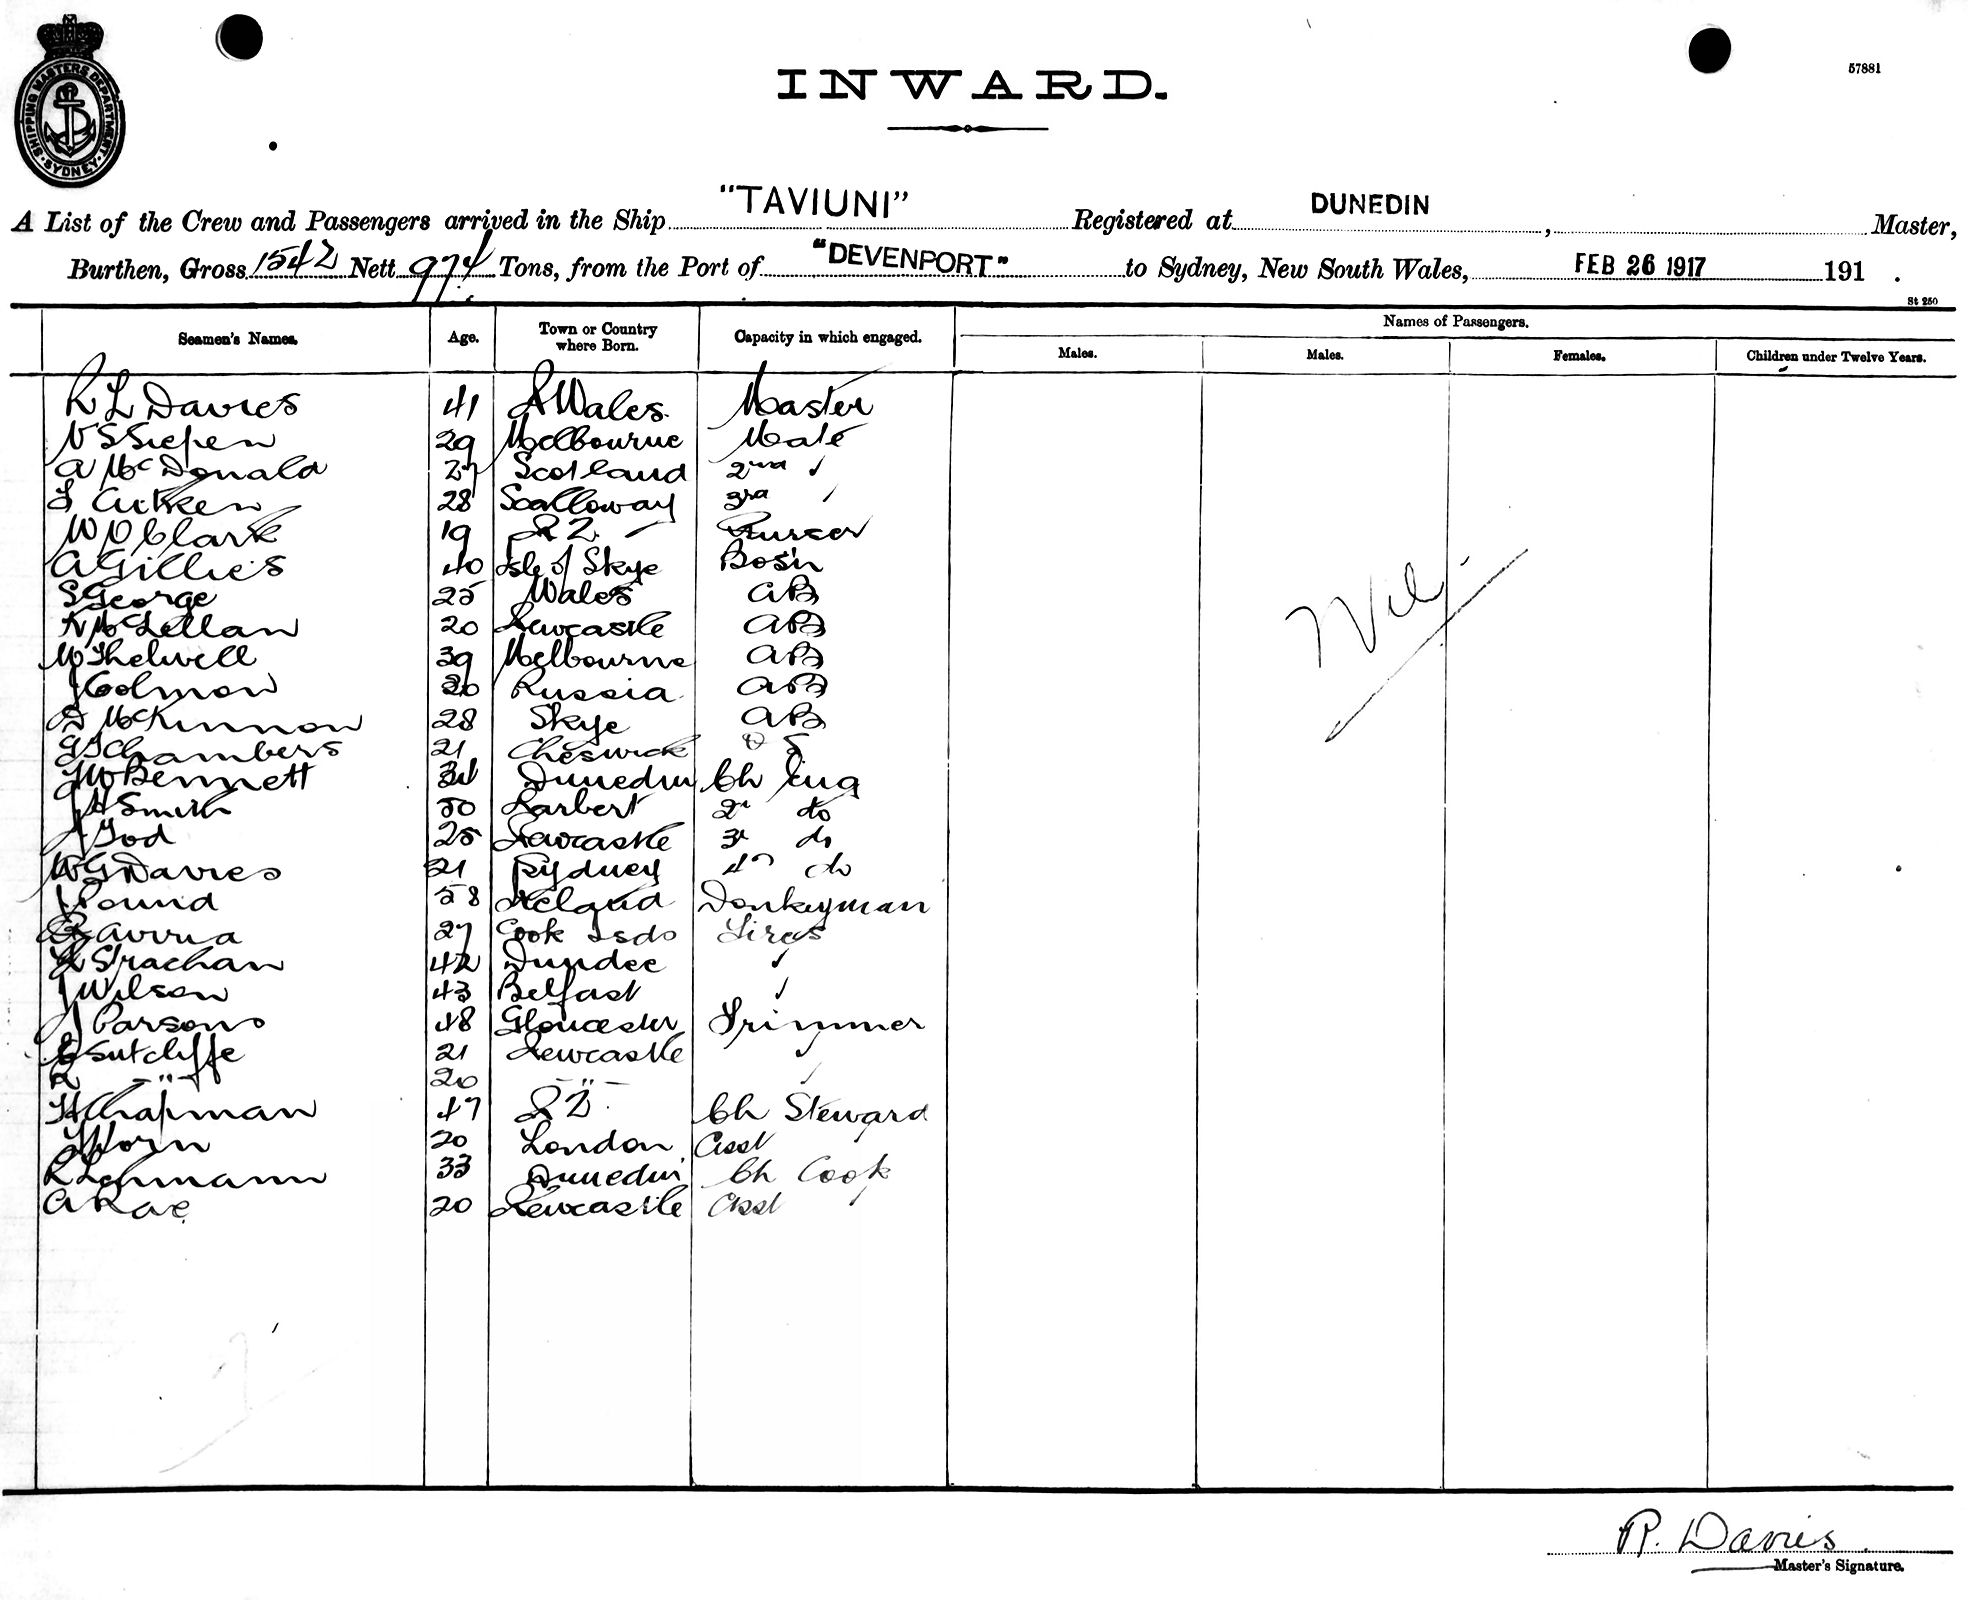 SHIPPING MASTERS DEPARTMENT
SYDNEY
57881
INWARD.
A List of the Crew and Passengers arrived in the Ship "TAVIUNI" Registered at DUNEDIN , Master,
Burthen, Gross 1542 Nett 974 Tons, from the Port of "DEVENPORT" to Sydney, New South Wales, FEB 26 1917 191 .
St 250
Seamen's Names. Age. Town or Country where Born. Capacity in which engaged. Names of Passengers.
Males. Males. Females. Children under Twelve Years.
R L Davies 41 Wales Master
29 Melbourne Mate
A McDonald 27 Scotland 2nd
Aitken 28 Scalloway 3rd
W D Clark 19 Purser
A Gillies 40 Isle of Skye Bosn
S George 25 Wales AB
McLellan 20 Newcastle AB
W Thelwell 39 Melbourne AB
J Colmon Russia AB
D McKinnon 28 Skye AB
G T Chambers 21 Cheswick O S
Bennett Dunedin Ch Eng
J H Smith 50 Larbert 2 do
J Tod 25 Newcastle 3 do
W G Davies 21 Sydney 4 do
J Pound 58 Donkeyman
27 Cook Isds Fires
Strachan 42 Dundee
J Wilson 43 Belfast
J Parsons 48 Gloucester Trimmer
E Sutcliffe 21 Newcastle
R -"- 20 -"-
H Chapman 47 Ch Steward
Horn 20 London Asst
R Lehmann 33 Dunedin Ch Cook
A Rae 20 Newcastle Asst
Nil.
R. Davies
Master's Signature.